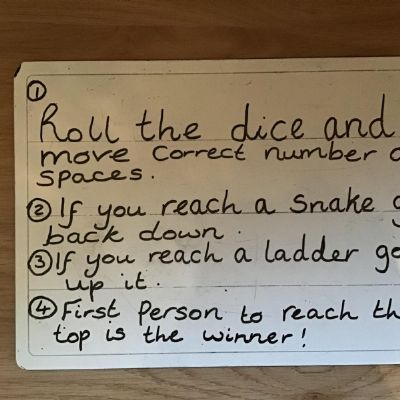 ①
Roll the dice and
move Correct number
spaces.
② If you reach a Snake
back down.
③ If you reach a ladder go
up it.
④ First Person to reach th
top is the winner!